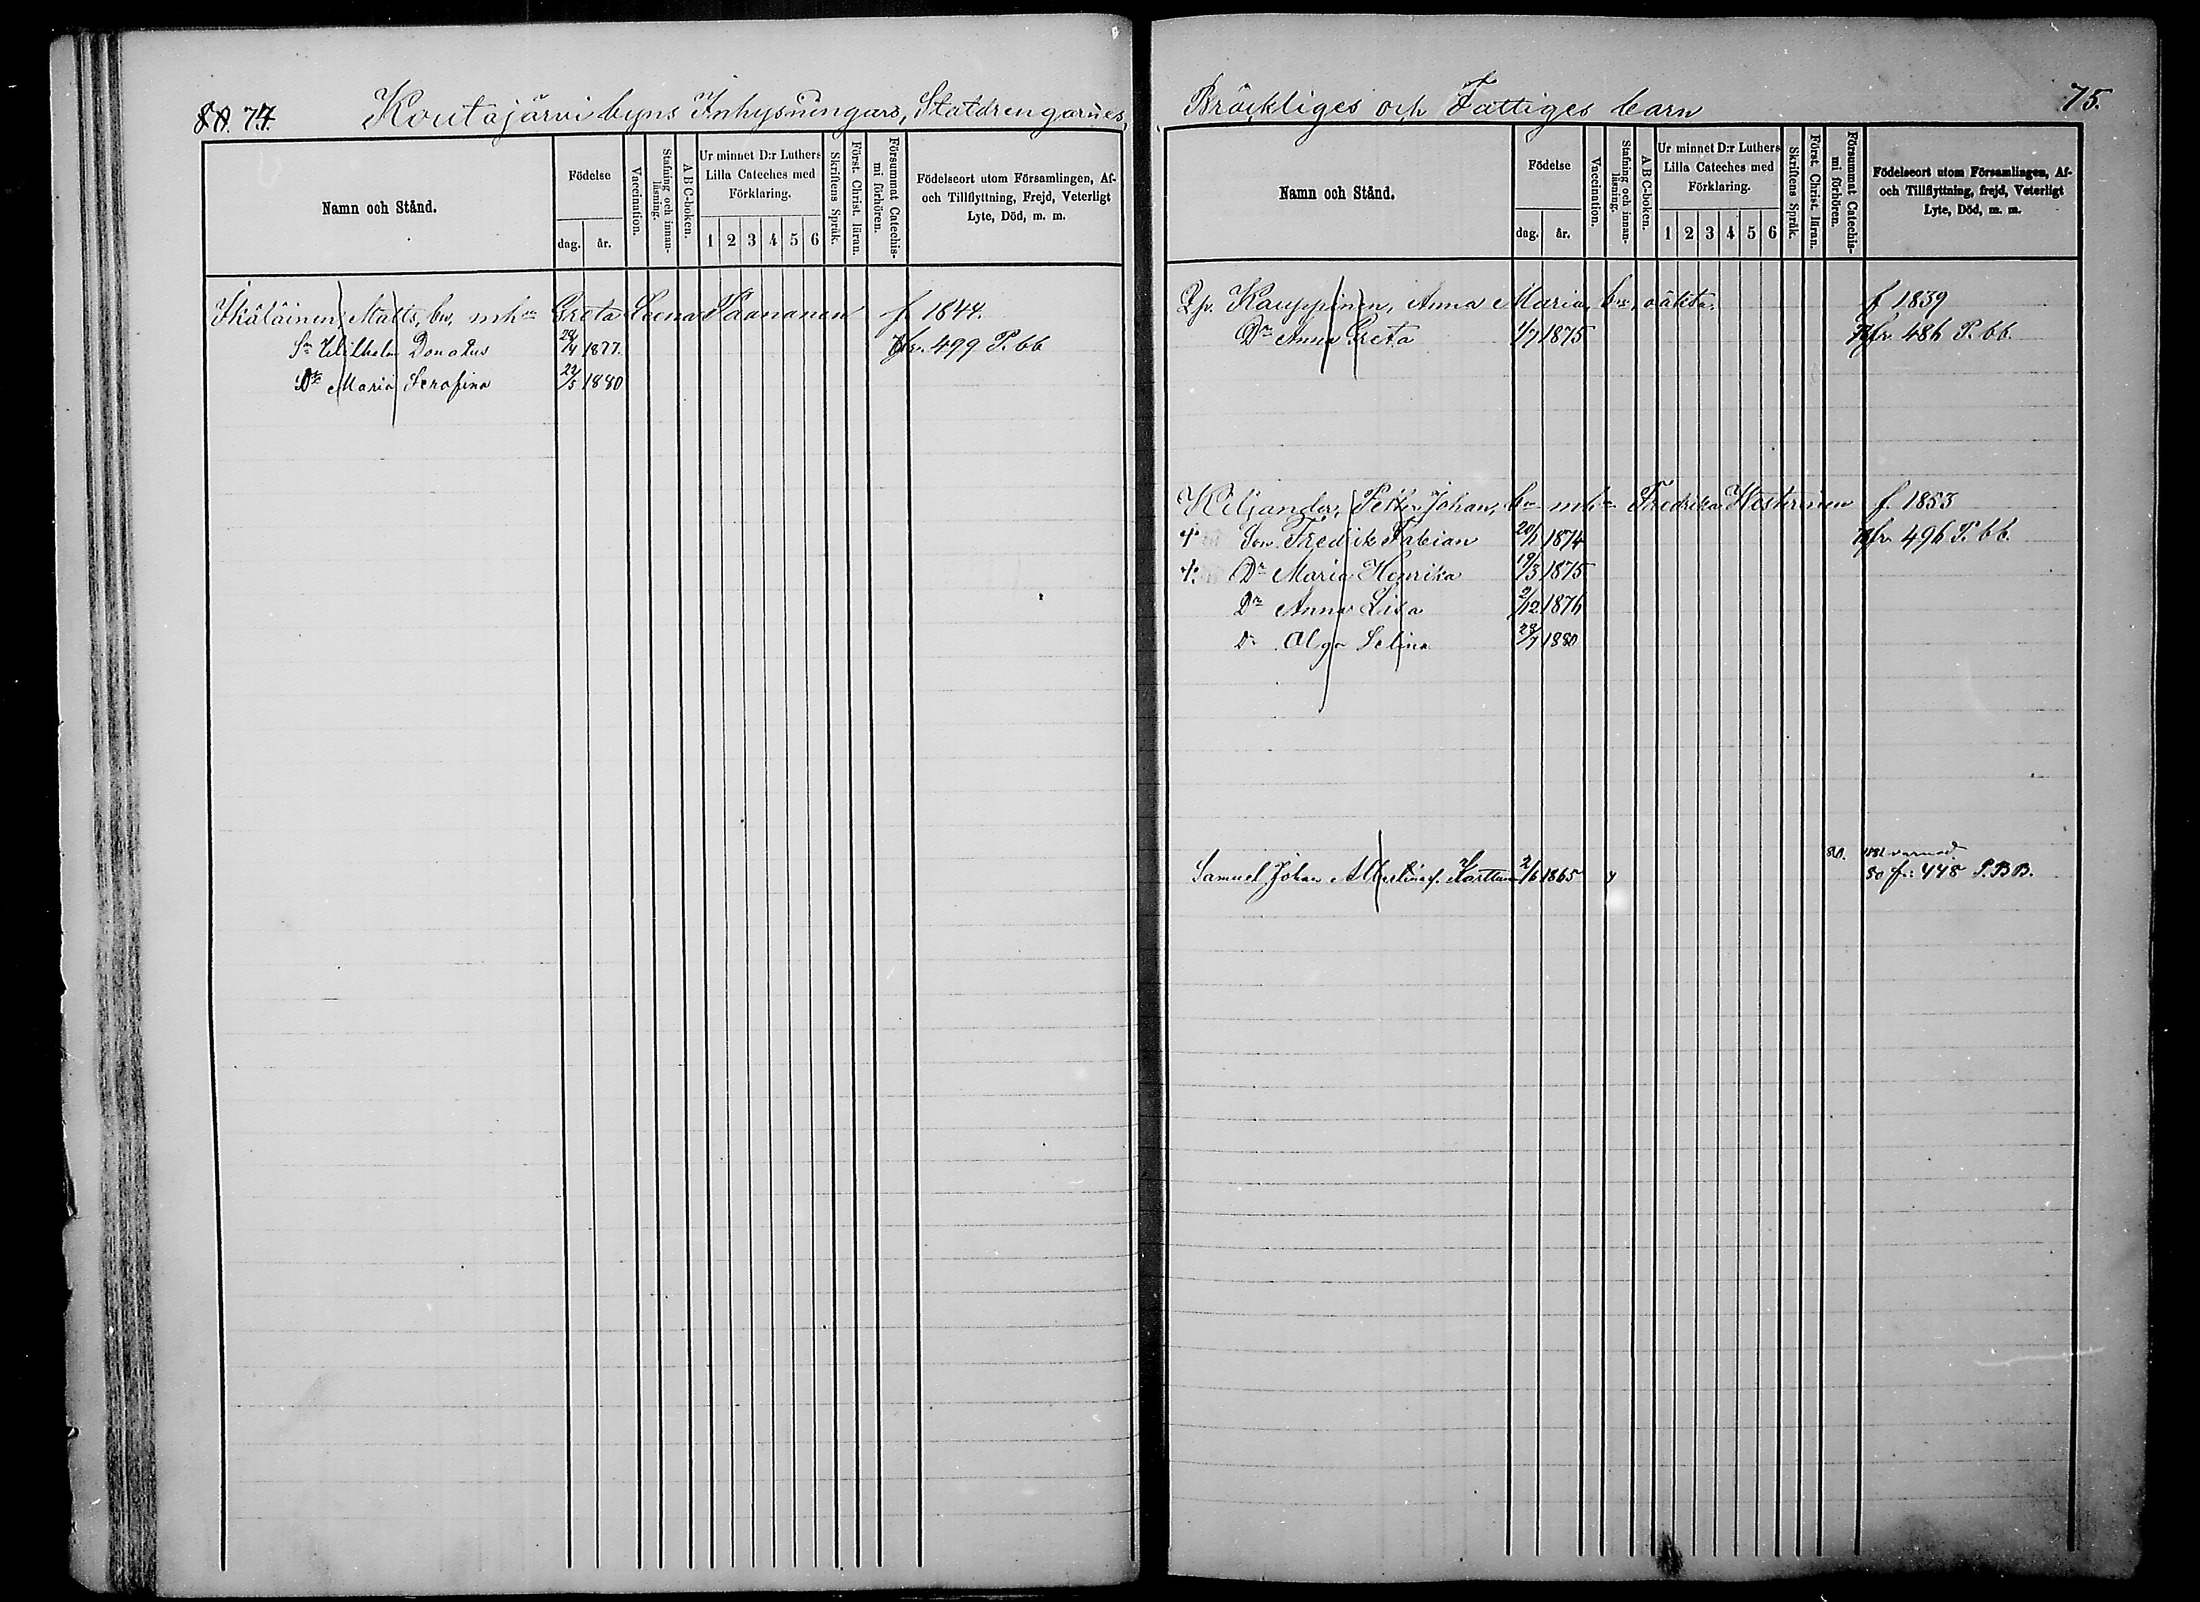 74. Koutajärvi byns Inhysningars, Statdrengarnes,
Namn och Stånd.
Födelse
dag. år.
Vaccination.
Stafning och innanläsning.
A B C-boken.
Ur minnet D:r Luthers Lilla Cateches med Förklaring.
1 2 3 4 5 6
Skriftens Språk.
Först. Christ. läran.
Försummat Catechismi förhören.
Födelseort utom Församlingen, Af- och Tillflyttning, Frejd, Veterligt Lyte, Död, m. m.
Matts, bo, mhu Greta Leena Väänänen f. 1844.
Sn Wilhelm Donatus 1877. 499 P. bb
Dr Maria Serafina 22/5 1880
Bräckliges och Fattiges barn 75.
Namn och Stånd.
Födelse
dag. år.
Vaccination.
Stafning och innanläsning.
A B C-boken.
Ur minnet D:r Luthers Lilla Cateches med Förklaring.
1 2 3 4 5 6
Skriftens Språk.
Först. Christ. läran.
Försummat Catechismi förhören.
Födelseort utom Församlingen, Af- och Tillflyttning, frejd, Veterligt Lyte, Död, m. m.
Kauppinen, Anna Maria, oäkta. f 1839
Dr Anna Greta 1/7 1875 486 P. bb.
Kiljander, Petter Johan, mhu Fredrika f. 1853
Son Fredrik Fabian 20/1 1874 496 P. bb.
Dr Maria Henrika 19/3 1875
Dr Anna Lisa 2/12 1876
Dr Olga Selina 1880
Samuel Johan 2/6 1865 y 80. 448 P.BB.